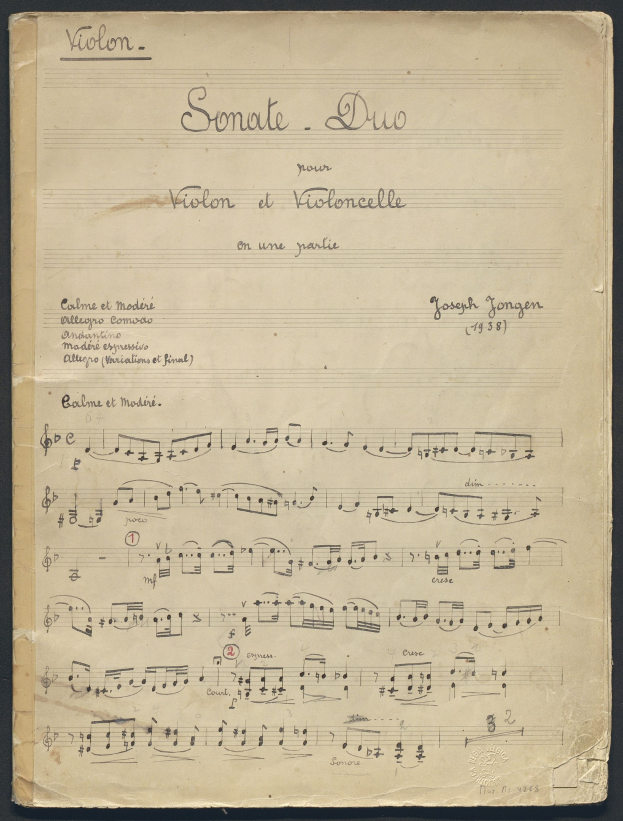 Violon -
Sonate - Duo
pour
Violon et Violoncelle
en une partie
Calme et Modéré
Allegro Comodo
Andantino
Modéré espressivo
Allegro (Variations et final)
Joseph Jongen
(1938)
Calme et Modéré.
dim
poco
1
mf
cresc
f
2
espress.
Cresc
Court.
dim
Sonore
3 2